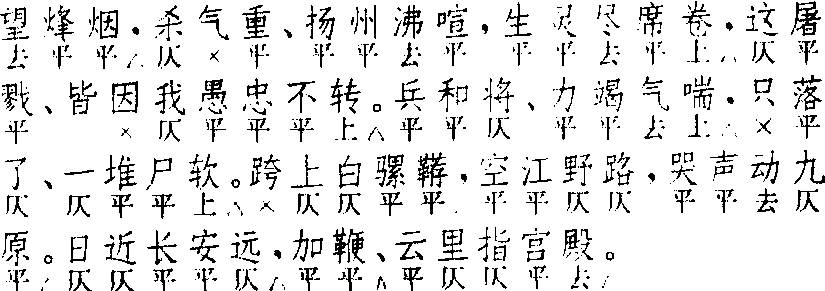 望烽烟,杀气重、扬州沸喧,生灵尽席卷,这屠
去平平△仄×平平平去平平平去平上△仄平
戮、皆因我愚忠不转。兵和将、力竭气喘,只落
平×仄平平平上△平平仄平平去上△×平
了、一堆尸软。跨上白骡鞯,空江野路,哭声动九
仄仄平平上△×仄仄平平平平仄仄平平去仄
原。日近长安远,加鞭、云里指宫殿。
平△仄仄平平仄△平平△平仄仄平去△